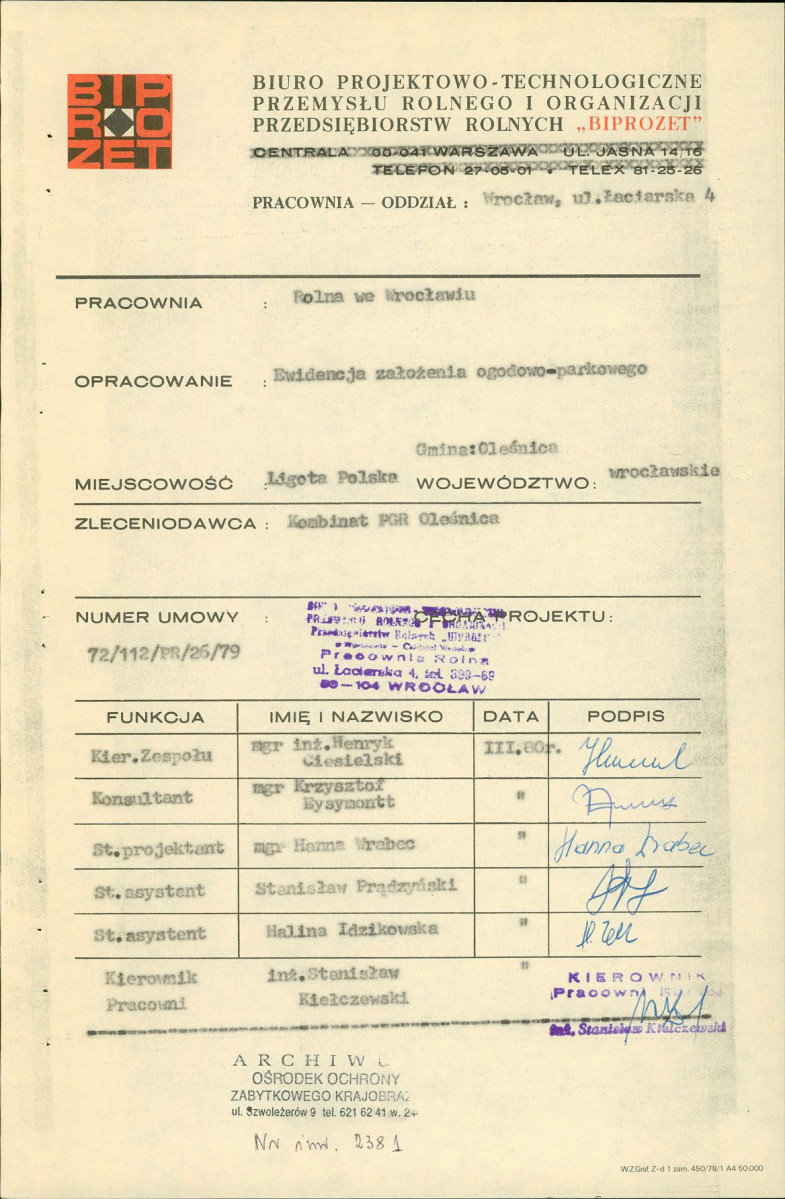 BIP
RO
ZET
BIURO PROJEKTOWO-TECHNOLOGICZNE
PRZEMYSŁU ROLNEGO I ORGANIZACJI
PRZEDSIĘBIORSTW ROLNYCH „BIPROZET”
CENTRALA 00-041 WARSZAWA UL. JASNA 14/16
TELEFON 27-05-01 • TELEX 81-25-26
PRACOWNIA — ODDZIAŁ : Wrocław, ul.Łaciarska 4
PRACOWNIA : Rolna we Wrocławiu
OPRACOWANIE : Ewidencja założenia ogodowo-parkowego
Gmina:Oleśnica
MIEJSCOWOŚĆ : Ligota Polska WOJEWÓDZTWO: wrocławskie
ZLECENIODAWCA : Kombinat PGR Oleśnica
NUMER UMOWY : CECHA PROJEKTU:
72/112/PR/26/79
Przedsiębiorstw Rolnych „BIPROZET”
Pracownia Rolna
ul. Łaciarska 4, tel. 399-69
50-104 WROCŁAW
FUNKCJA IMIĘ I NAZWISKO DATA PODPIS
Kier.Zespołu mgr inż.Henryk Ciesielski III.80r.
Konsultant mgr Krzysztof Eysymontt "
St.projektant mgr Hanna Wrabec " Hanna Wrabec
St.asystent Stanisław Prądzyński "
St.asystent Halina Idzikowska "
Kierownik Pracowni inż.Stanisław Kiełczewski "
KIEROWNIK
Pracowni
inż. Stanisław Kiełczewski
ARCHIWU
OŚRODEK OCHRONY
ZABYTKOWEGO KRAJOBRAZ
ul. Szwoleżerów 9 tel. 621 62 41 w. 24
Nr inw. 2381
WZGraf. Z-d 1 zam. 450/78/1 A4 50.000